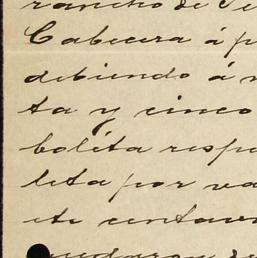 rancho de Te
Cabecera á p
debiendo á
ta y cinco
boléta resp
leta por va
ete centav
quedaron